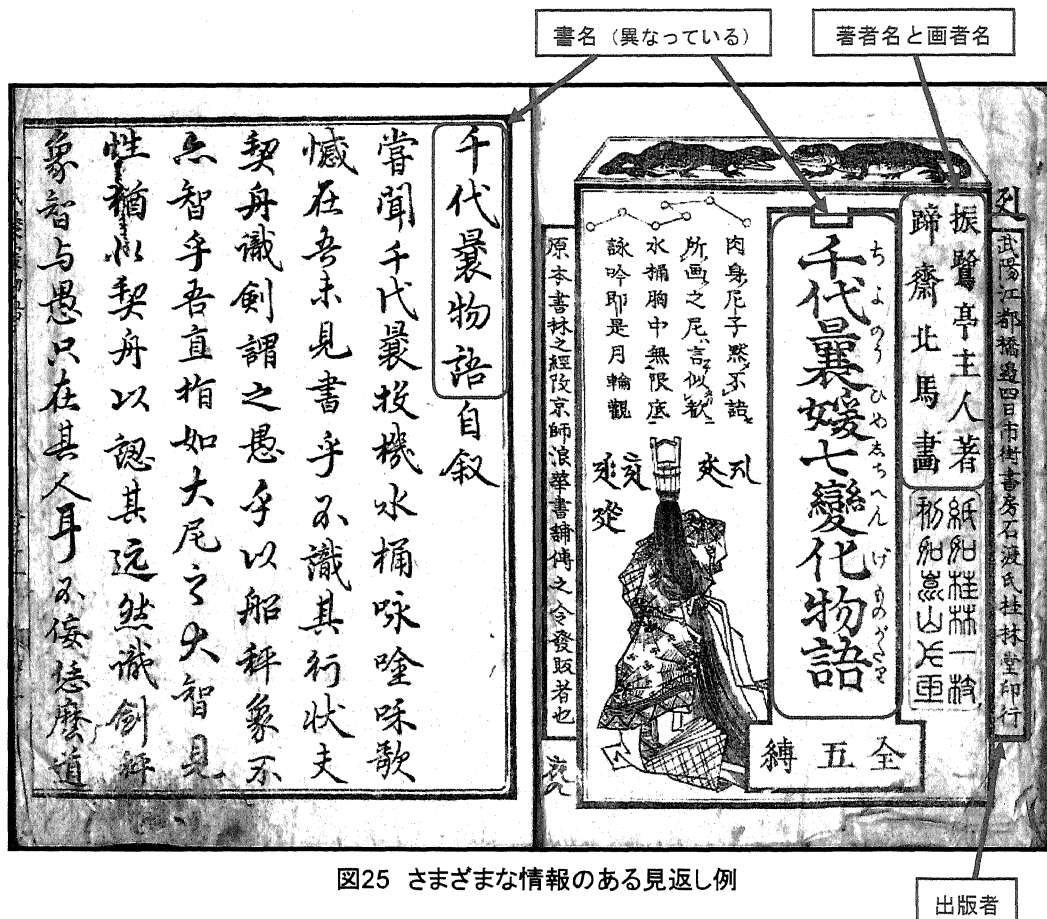 書名（異なっている）
著者名と画者名
武陽江都橋邉四日市街書房石渡氏桂林堂印行
振鷺亭主人著
蹄齋北馬畵
千代曩媛七變化物語
ちよのう ひめ しちへん げ ものがたり
全五縛
肉身尼子黙不語
所画之尼言似歓
水桶胸中無限底
詠吟即是月輪觀
原本書林之經改京師浪華書舗傳之令發販者也
千代曩物語自叙
嘗聞千代曩投機水桶咏唫味歌
憾在吾未見書乎不識其行状夫
契舟識劍謂之愚乎以船秤象不
智乎吾直指如大尾之大智見
性猶以契舟以認其迒然識劍秤
象智与愚只在其人耳不佞
図25 さまざまな情報のある見返し例
出版者